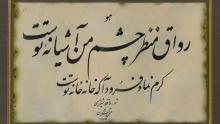 هو
رواق منظر چشم من آشیانه توست
کرم نما و فرود آ که خانه خانه توست